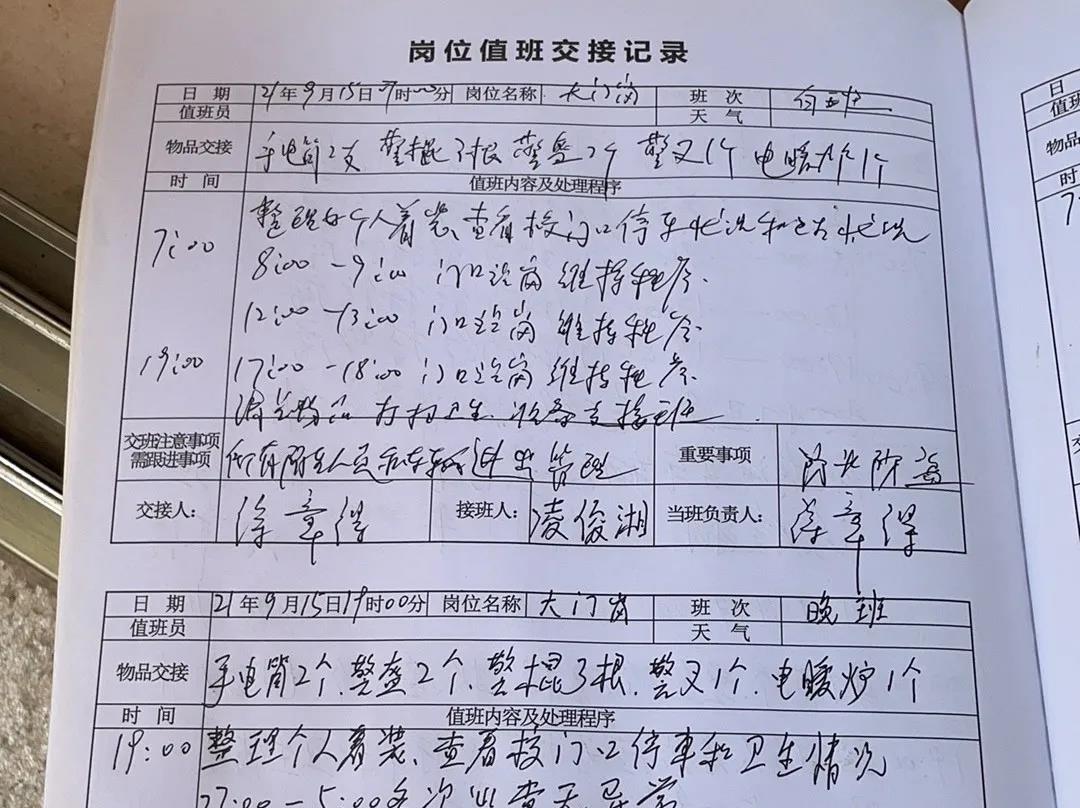 岗位值班交接记录
日 期 21年9月15日07时00分 岗位名称 大门岗 班 次 白班
值班员 天 气
物品交接 手电筒2支 警棍3根 警盔2个 警叉1个 电暖炉1个
时 间 值班内容及处理程序
7:00 整理好个人着装、查看校门口停车状况和卫生状况
8:00-9:00 门口站岗维持秩序.
12:00-13:00 门口站岗维持秩序.
19:00 17:00-18:00 门口站岗维持秩序.
清点物品 打扫卫生 准备交接班
交班注意事项
需跟进事项 所有陌生人员和车辆进出管理 重要事项 防火防盗
交接人: 徐章得 接班人: 凌俊湘 当班负责人: 徐章得
日 期 21年9月15日19时00分 岗位名称 大门岗 班 次 晚班
值班员 天 气
物品交接 手电筒2个、警盔2个、警棍3根、警叉1个、电暖炉1个
时 间 值班内容及处理程序
19:00 整理个人着装、查看校门口停车和卫生情况
22:00-5:00多次巡查无异常
日
值班
物品
时
7:
交
需